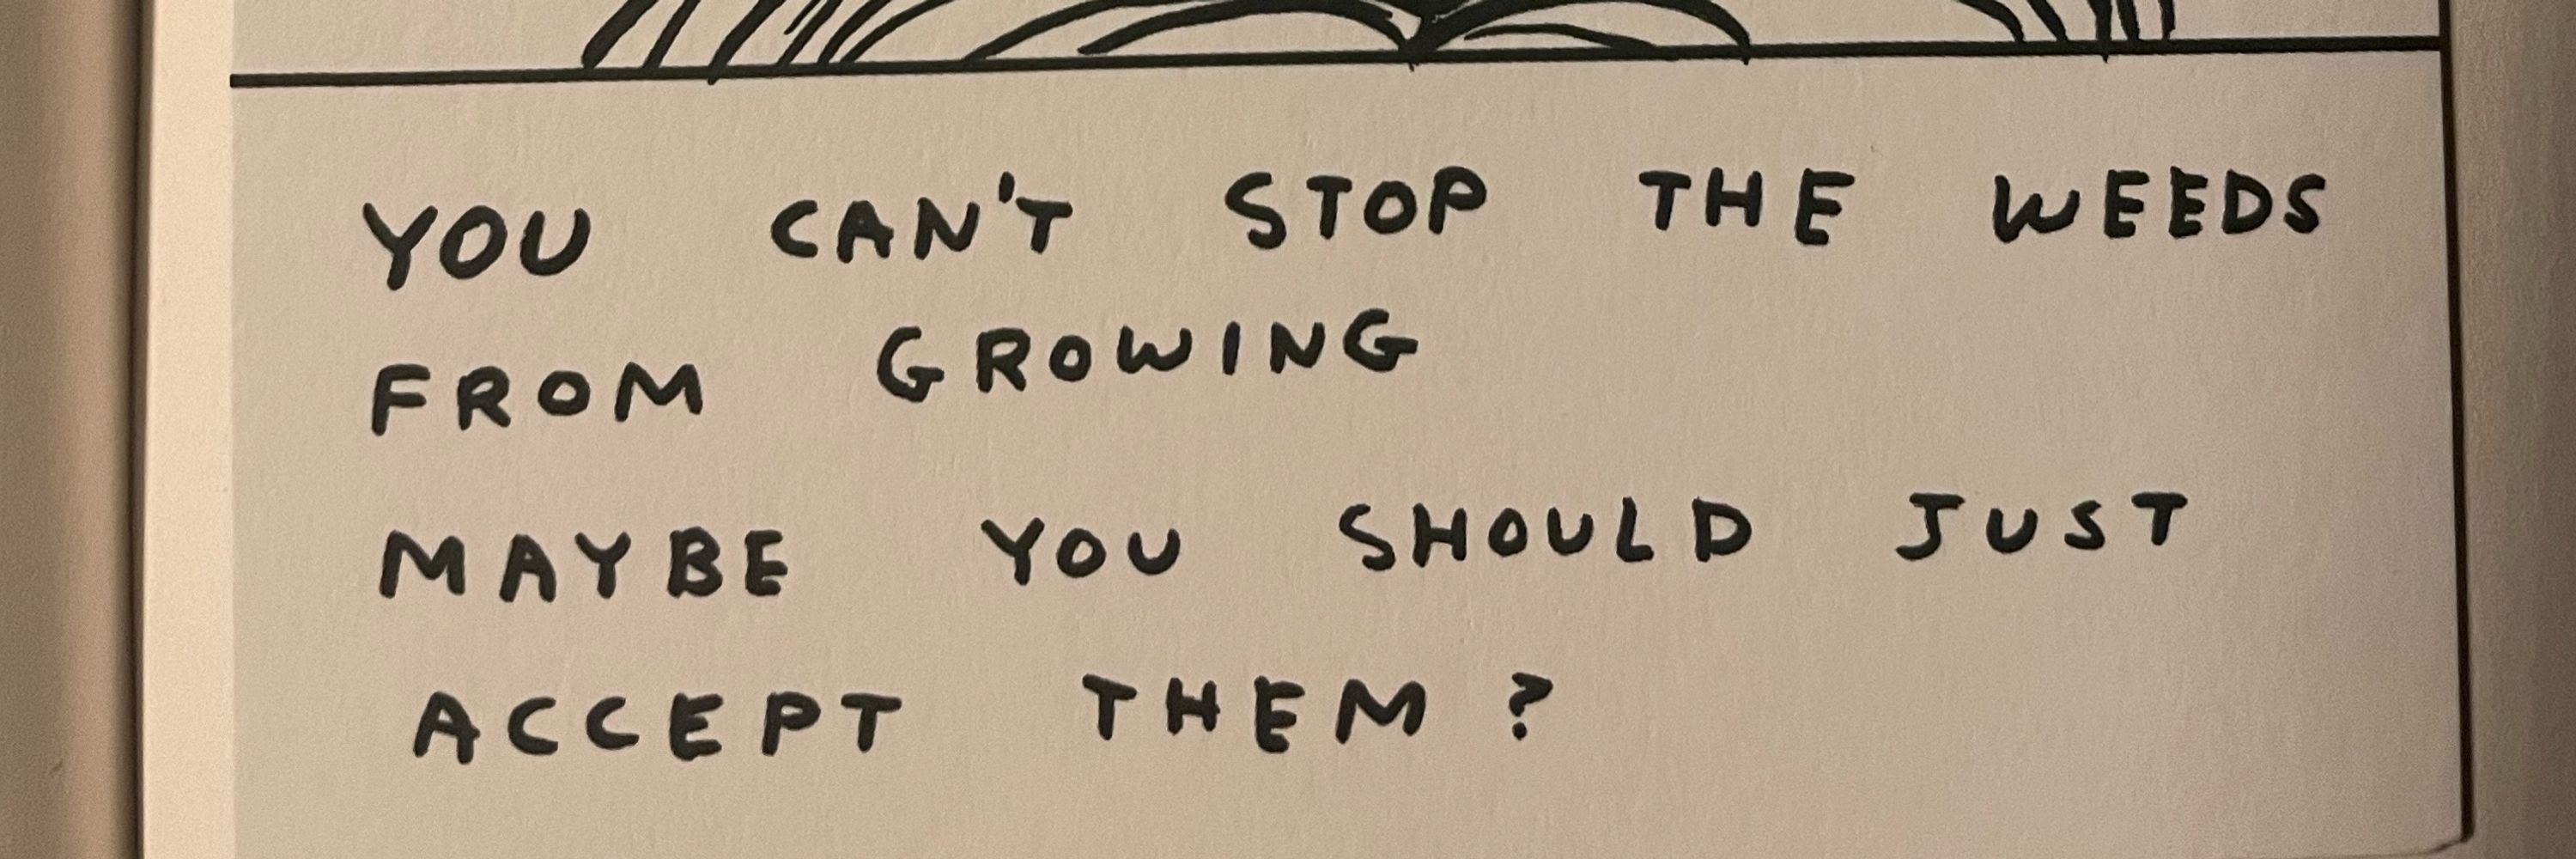 YOU CAN'T STOP THE WEEDS
FROM GROWING
MAYBE YOU SHOULD JUST
ACCEPT THEM?